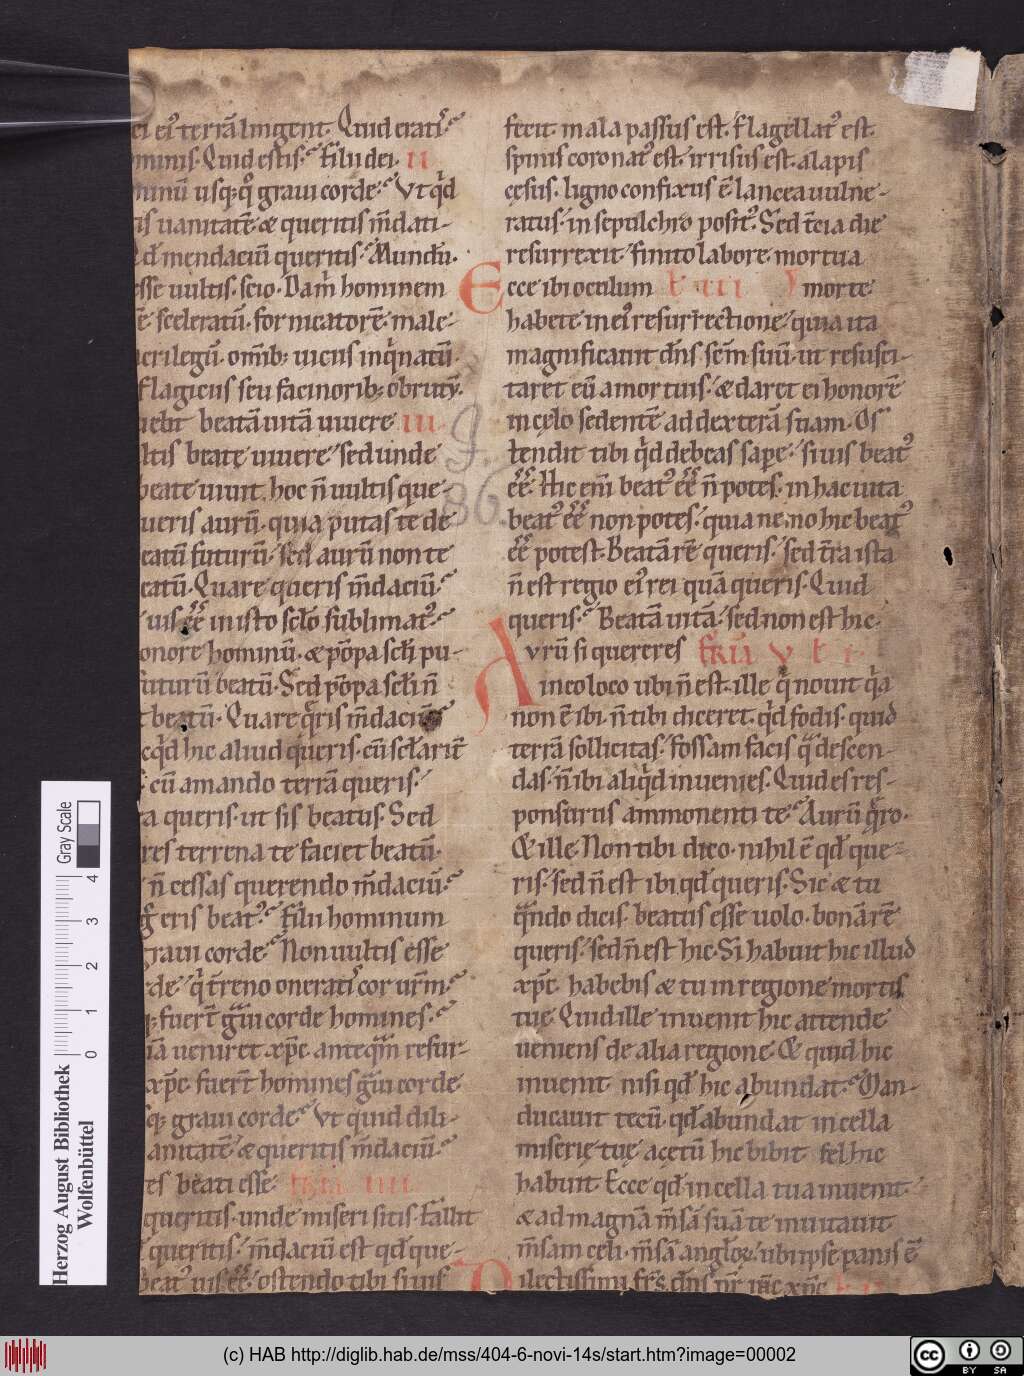 ei eiꝰ terrā lingent. Quid eratis?
ominis. Quid estis? filii dei. II
minū usq; qͦ graui corde? Vt qͥd
tis uanitatē & queritis m̄daci-
Qd̄ mendaciū queritis? Mundū.
esse uultis. scio. Dam̄ hominem
ē sceleratū. fornicatorē. male-
acrilegū. omīb; uiciis inqͥnatū.
flagiciis seu facinorib; obrutū.
uelit beatā uitā uiuere III
ltis beatę uiuere? sed unde
beate uiuit. hoc n̄ uultis que-
ueris aurū. quia putas te de
eatū futurū. sed aurū non te
eatū. Quare queris m̄daciū?
uis ēē in isto sclo sublimatꝰ?
onore hominū. & pōpa scli pu-
futurū beatū. Sed pōpa scli n̄
t beatū. Quare qͥris m̄daciū?
cqͥd hic aliud queris. cū sclarit̄
cū amando terrā queris.
ra queris. ut sis beatus. Sed
res terrena te faciet beatū.
n̄ cessas querendo m̄daciū?
eris beatꝰ? filii hominum
graui corde? Non uultis esse
rde. qͥ t̄reno onerati cor ur̄m?
q; fuer̄t gͣui corde homines?
ā ueniret xp̄c. anteqm̄ resur-
xp̄c. fuer̄t homines gͣui corde
sq; graui corde? Vt quid dili-
anitatē. & queritis m̄daciū?
tes beati esse. IIII
queritis. unde miseri sitis. Fallit
queritis. m̄daciū est qd̄ que-
beatꝰ uis ēē? ostendo tibi si uis
9.
86.
fecit. mala passus est. flagellatꝰ est.
spinis coronatꝰ est. irrisus est. alapis
cęsus. ligno confixus ē. lancea uulne-
ratus. in sepulchro positꝰ. Sed t̄cia die
resurrexit. finito labore. mortua
Ecce ibi oculum morte
habete in eiꝰ resurrectione. quia ita
magnificauit dn̄s sc̄m suū. ut resusci-
taret eū a mortuis. & daret ei honorē
in cęlo sedentē ad dexterā suam. Os
tendit tibi qͥd debeas sape. si uis beatꝰ
ēē. Hic eni beatꝰ ēē n̄ potes. in hac uita
beatꝰ ēē non potes. quia nemo hic beatꝰ
ēē potest. Beatā rē queris. sed t̄ra ista
n̄ est regio eiꝰ rei quā queris. Quid
queris? Beatā uitā. sed non est hic.
Avrū si quereres fr̄ia V
in eo loco ubi n̄ est. ille qͥ nouit qͥa
non ē ibi. n̄ tibi diceret. qͥd fodis. quid
terrā sollicitas. fossam facis qͣ descen-
das. n̄ ibi aliqͥd inuenies. Quid es res-
ponsurus ammonenti te? Aurū qͣro.
& ille. Non tibi dico. nihil ē qd̄ que-
ris. sed n̄ est ibi qd̄ queris. Sic & tu
qͣndo dicis. beatus esse uolo. bonā rē
queris. sed n̄ est hic. Si habuit hic illud
xp̄c. habebis & tu in regione mortis
tuę. Quid ille inuenit hic attende
ueniens de alia regione. & quid hic
inuenit. nisi qd̄ hic abundat? Man-
ducauit tecū. qd̄ abundat in cella
miserię tuę. acetū hic bibit fel hic
habuit. Ecce qd̄ in cella tua inuenit.
& ad magnā m̄sā suā te inuitauit
m̄sam celi. m̄sā anglor̄. ubi ipse panis ē
Dilectissimi frs. dn̄s nr̄ ihc xp̄c
Gray Scale
0 1 2 3 4
Herzog August Bibliothek
Wolfenbüttel
(c) HAB http://diglib.hab.de/mss/404-6-novi-14s/start.htm?image=00002
cc BY SA